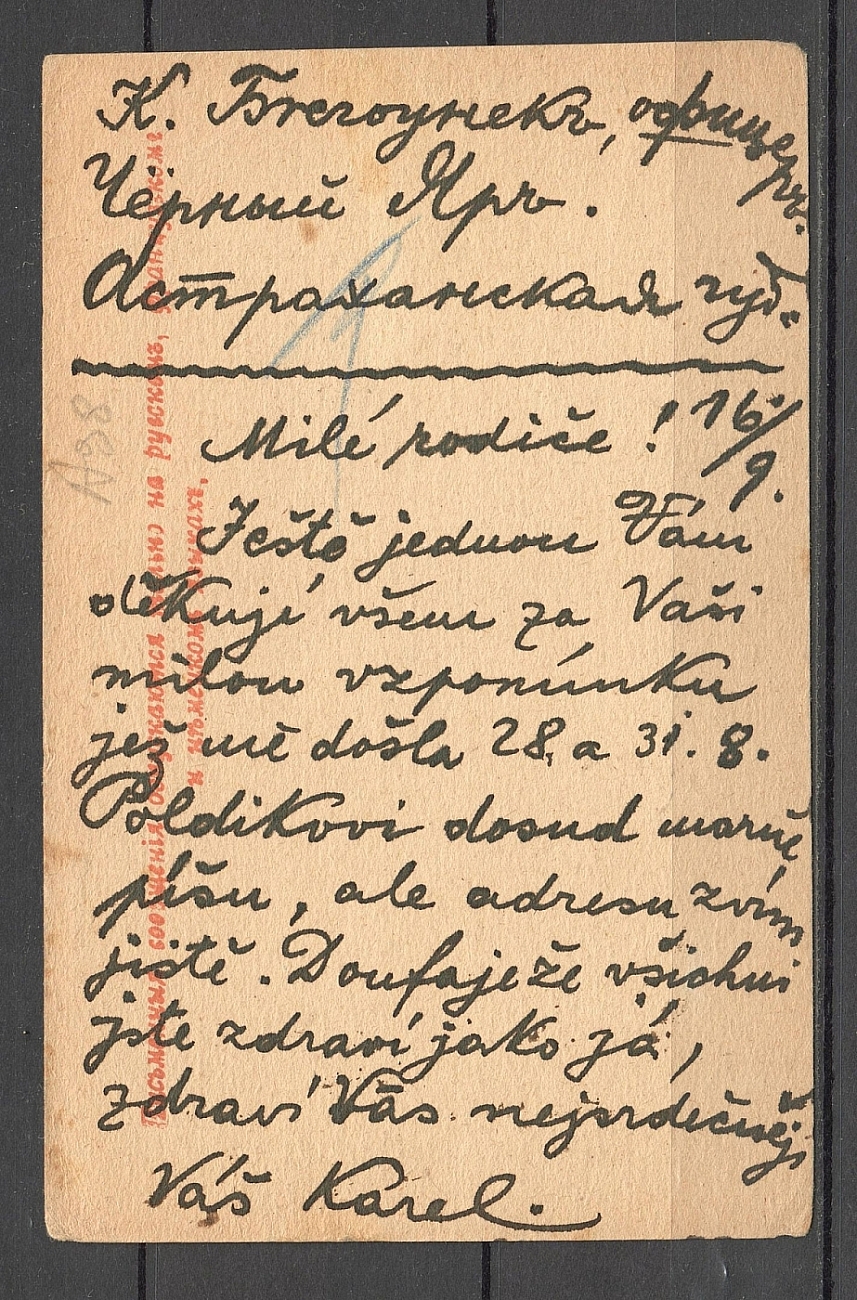 К. Бгегоунекъ, офице
ръ.
Чёрный Яръ.
Астраханская губ.
Milé rodiče! 16./9.
Ještě jednou Vám
děkuji všem za Vaši
milou vzpomínku
jež mě došla 28. a 31. 8.
Poldikovi dosud marně
píšu, ale adresu zvím
jistě. Doufaje že všichni
jste zdraví jako já,
zdraví Vás nejsrdečněji
Váš Karel.
A98
Письменныя сообщенія допускаются только на русскомъ, французскомъ
и нѣмецкомъ языкахъ.